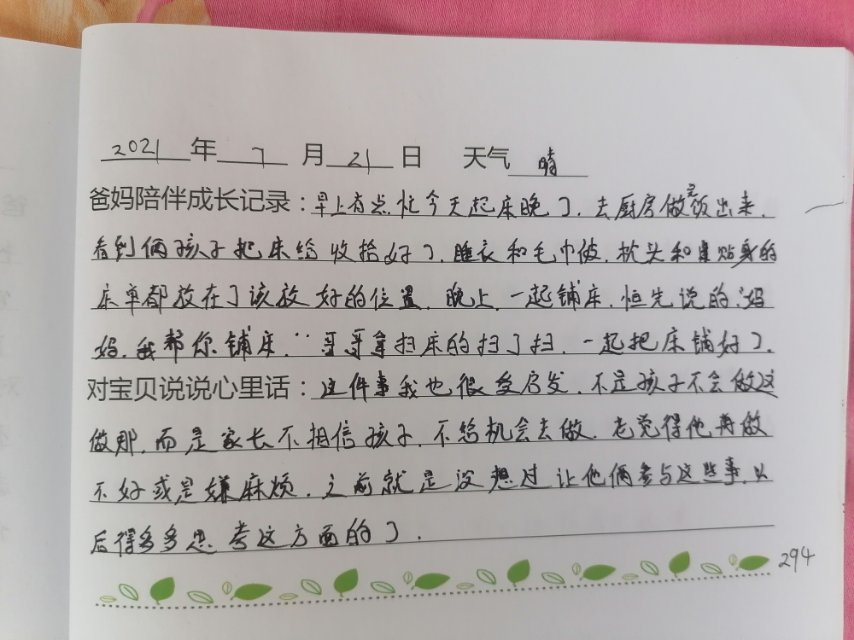 2021年7月21日 天气 晴
爸妈陪伴成长记录：早上有点忙今天起床晚了，去厨房做完饭出来，
看到俩孩子把床给收拾好了，睡衣和毛巾被，枕头和贴身的
床单都放在了该放好的位置，晚上，一起铺床，恒先说的“妈
妈，我帮你铺床，”哥哥拿扫床的扫了扫，一起把床铺好了。
对宝贝说说心里话：这件事我也很受启发，不是孩子不会做这
做那，而是家长不相信孩子，不给机会去做，老觉得他再做
不好或是嫌麻烦，之前就是没想过让他俩参与这些事，以
后得多多思考这方面的了．
294